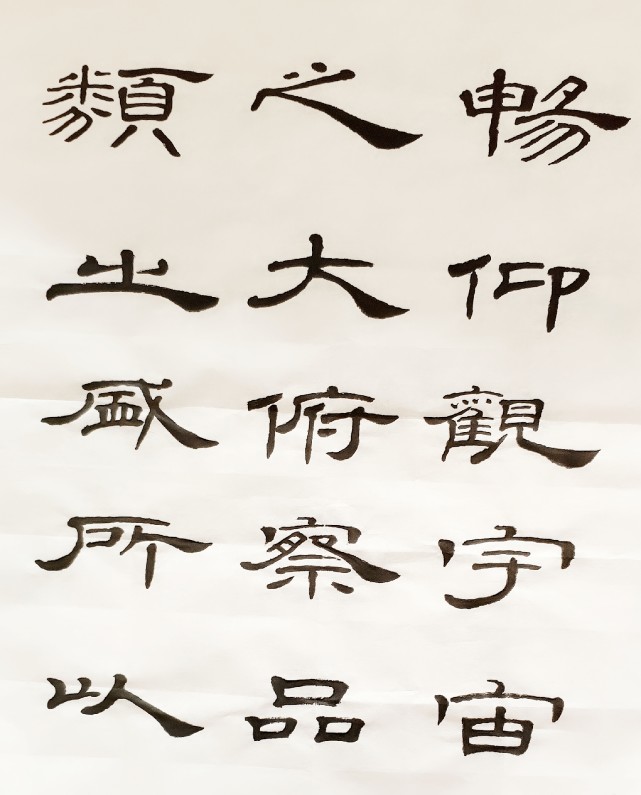 暢仰觀宇宙
之大俯察品
類之盛所以